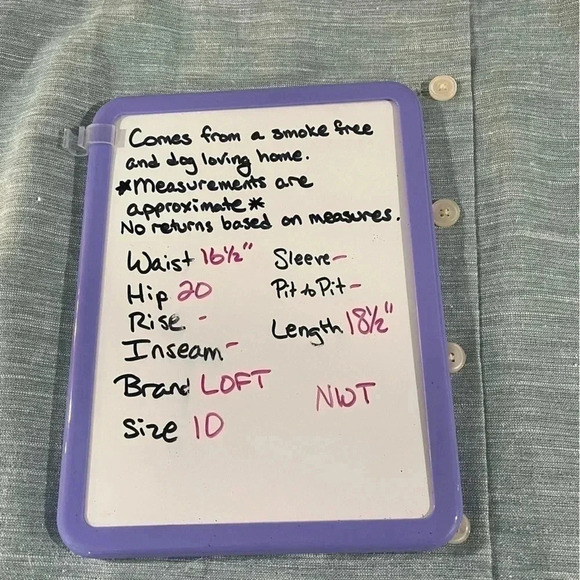 Comes from a smoke free
and dog loving home.
*Measurements are
approximate*
No returns based on measures.
Waist 16½" Sleeve-
Hip 20 Pit to Pit-
Rise - Length 18½"
Inseam-
Brand LOFT NWT
Size 10